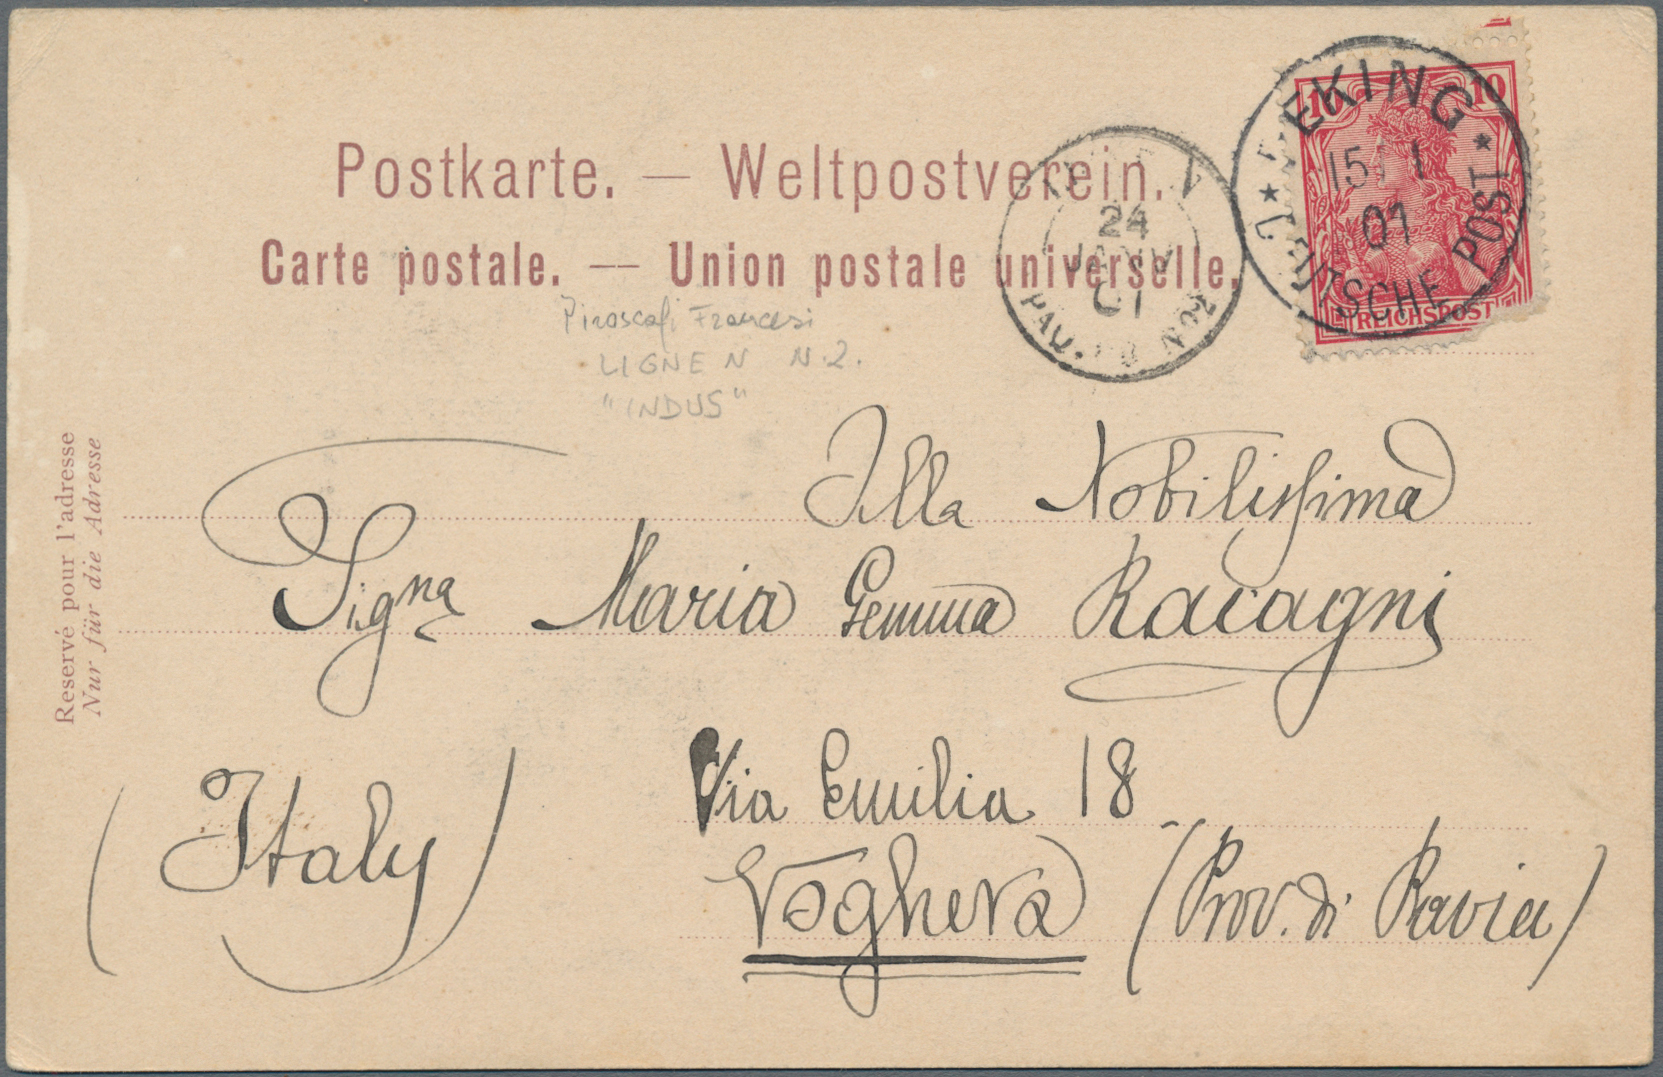 Postkarte. — Weltpostverein.
Carte postale. — Union postale universelle.
10 10
REICHSPOST
PEKING
15 1
01
DEUTSCHE POST
24
JANV
01
PAQ. FR. N No2
Piroscafi Francesi
LIGNE N N.2.
"INDUS"
Reservé pour l'adresse
Nur für die Adresse
Alla Nobilissima
Signa Maria Gemma Racagni
Via Emilia 18
Voghera (Prov. di Pavia)
(Italy)